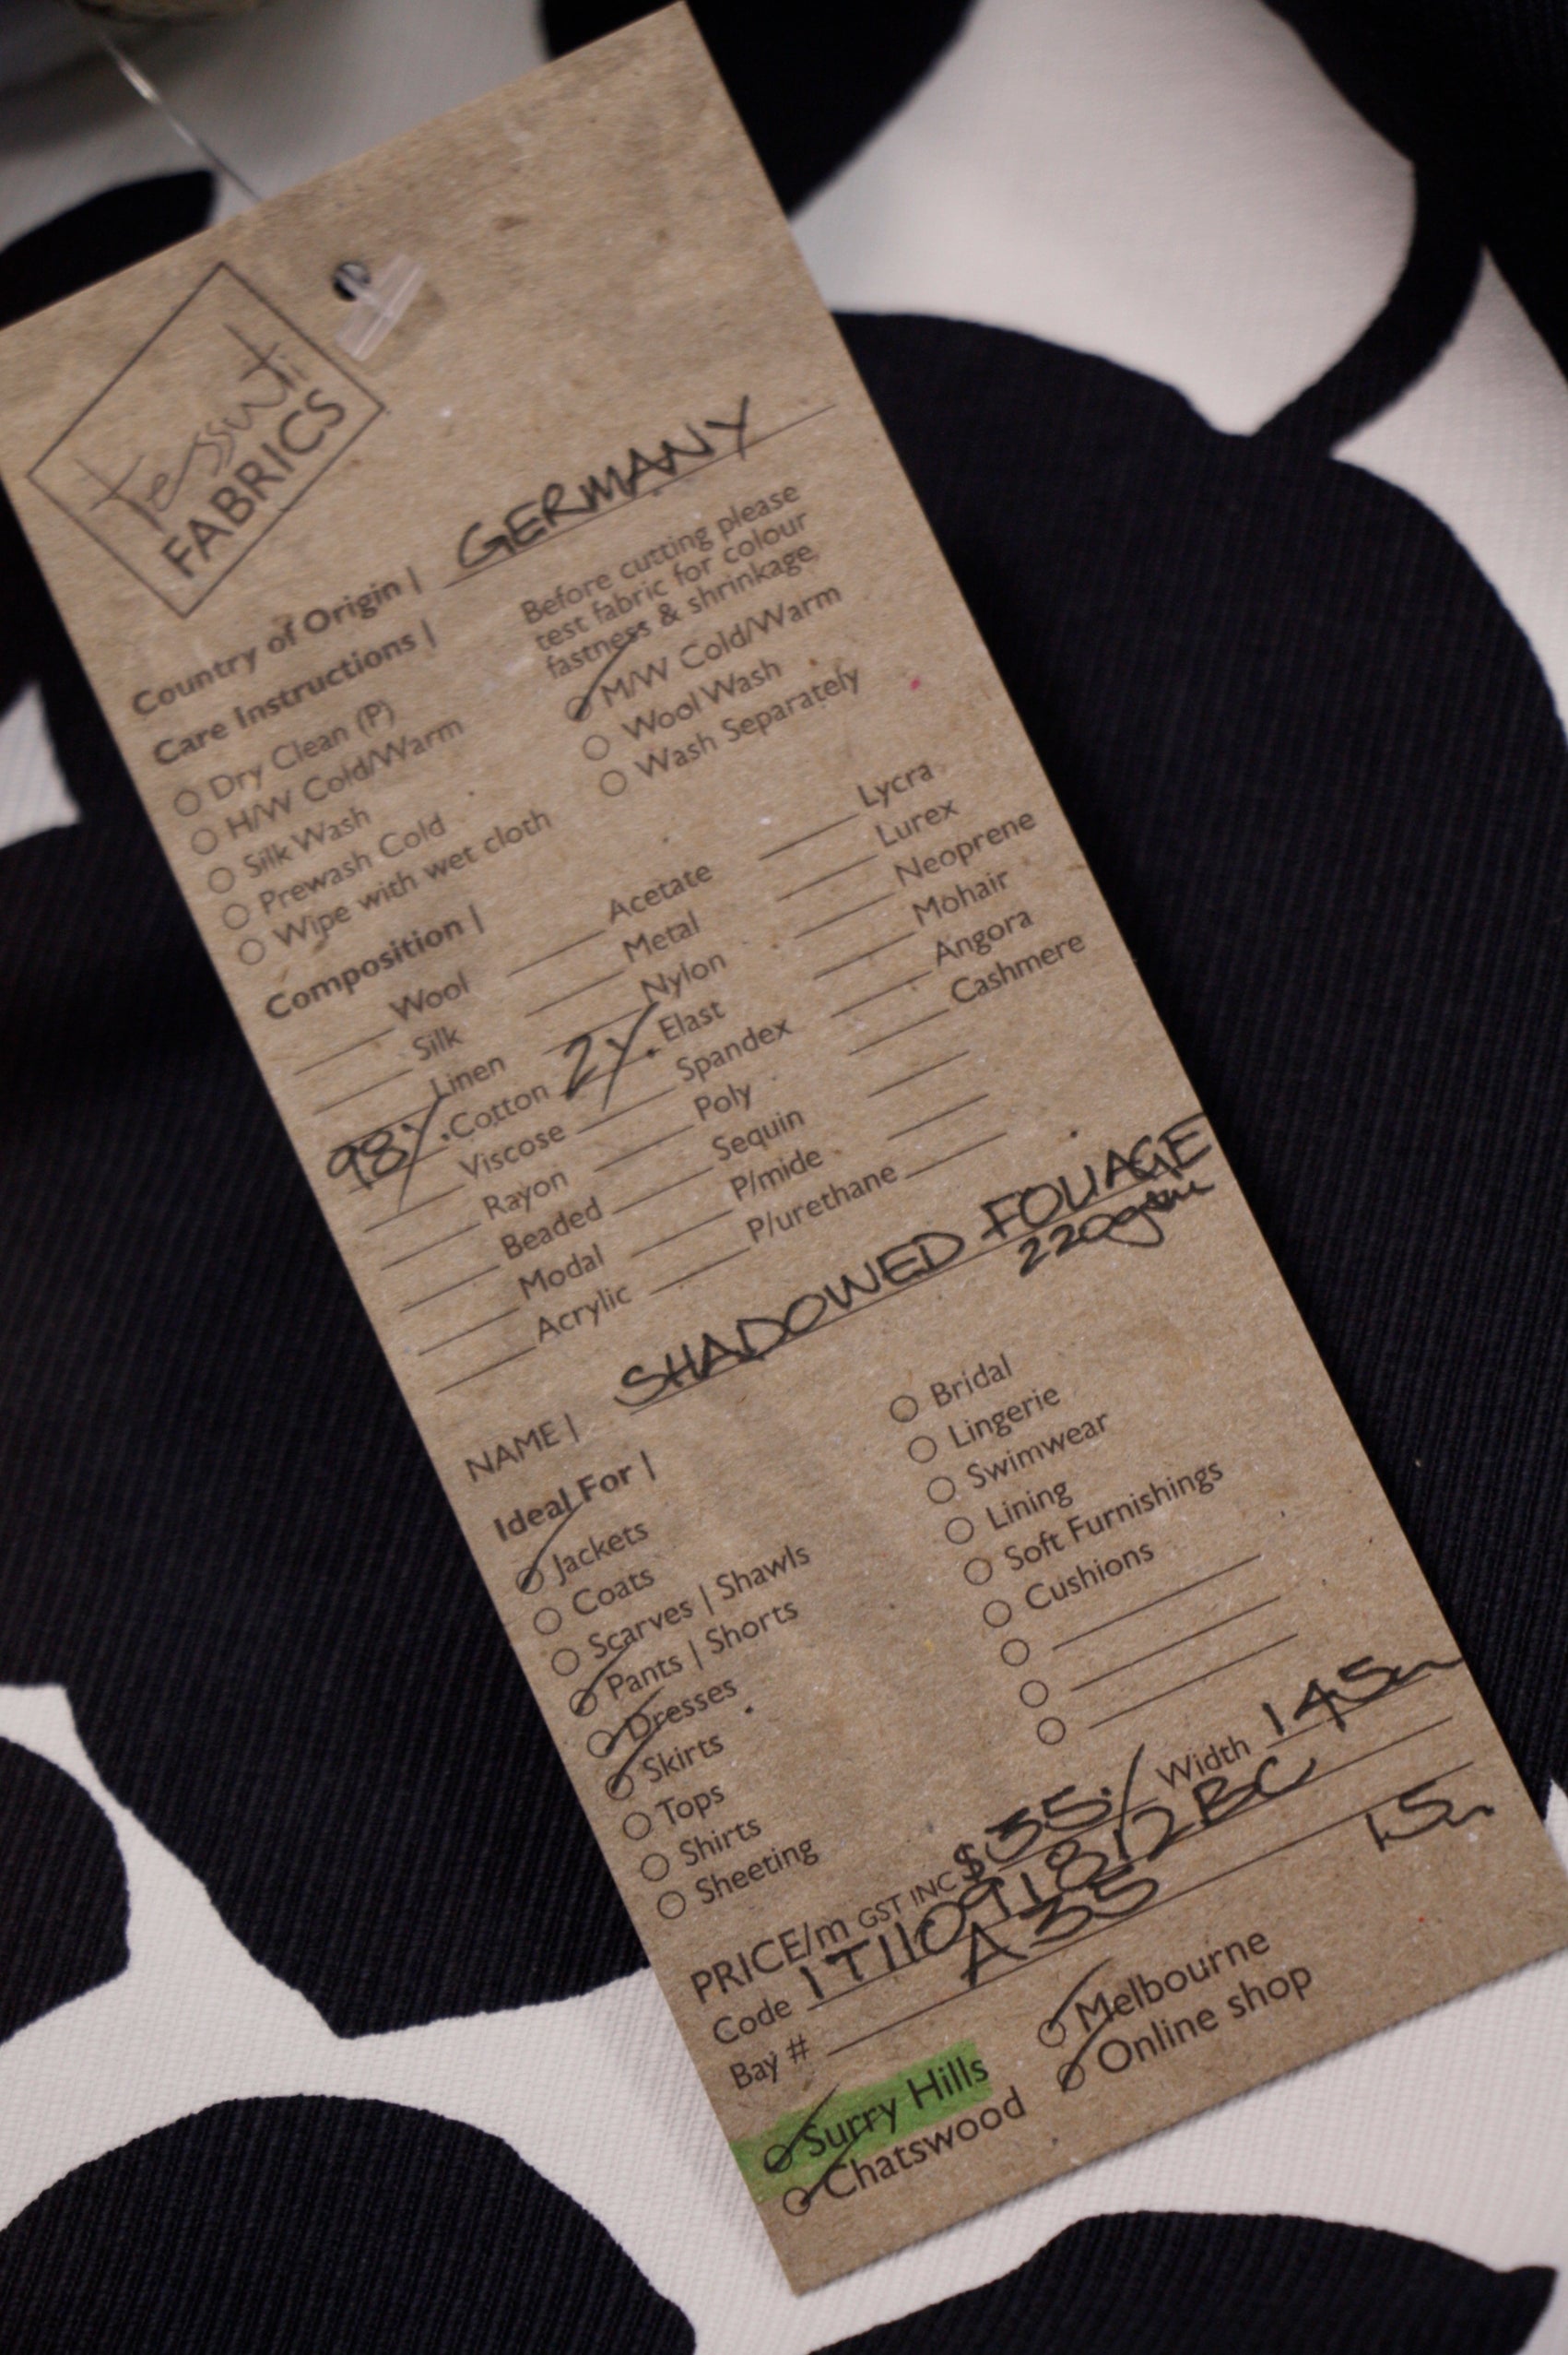 tessuti
FABRICS
Country of Origin | GERMANY
Care Instructions |
Before cutting please
test fabric for colour
fastness & shrinkage
Dry Clean (P)
H/W Cold/Warm
Silk Wash
Prewash Cold
Wipe with wet cloth
M/W Cold/Warm
Wool Wash
Wash Separately
Composition |
Wool
Silk
Linen
98% Cotton
Viscose
Rayon
Beaded
Modal
Acrylic
Acetate
Metal
Nylon
2% Elast
Spandex
Poly
Sequin
P/mide
P/urethane
Lycra
Lurex
Neoprene
Mohair
Angora
Cashmere
NAME | SHADOWED FOLIAGE
220gsm
Ideal For |
Jackets
Coats
Scarves | Shawls
Pants | Shorts
Dresses
Skirts
Tops
Shirts
Sheeting
Bridal
Lingerie
Swimwear
Lining
Soft Furnishings
Cushions
PRICE/m GST INC $35. Width 145
Code 1T11091812BC
Bay # A35
Surry Hills
Chatswood
Melbourne
Online shop